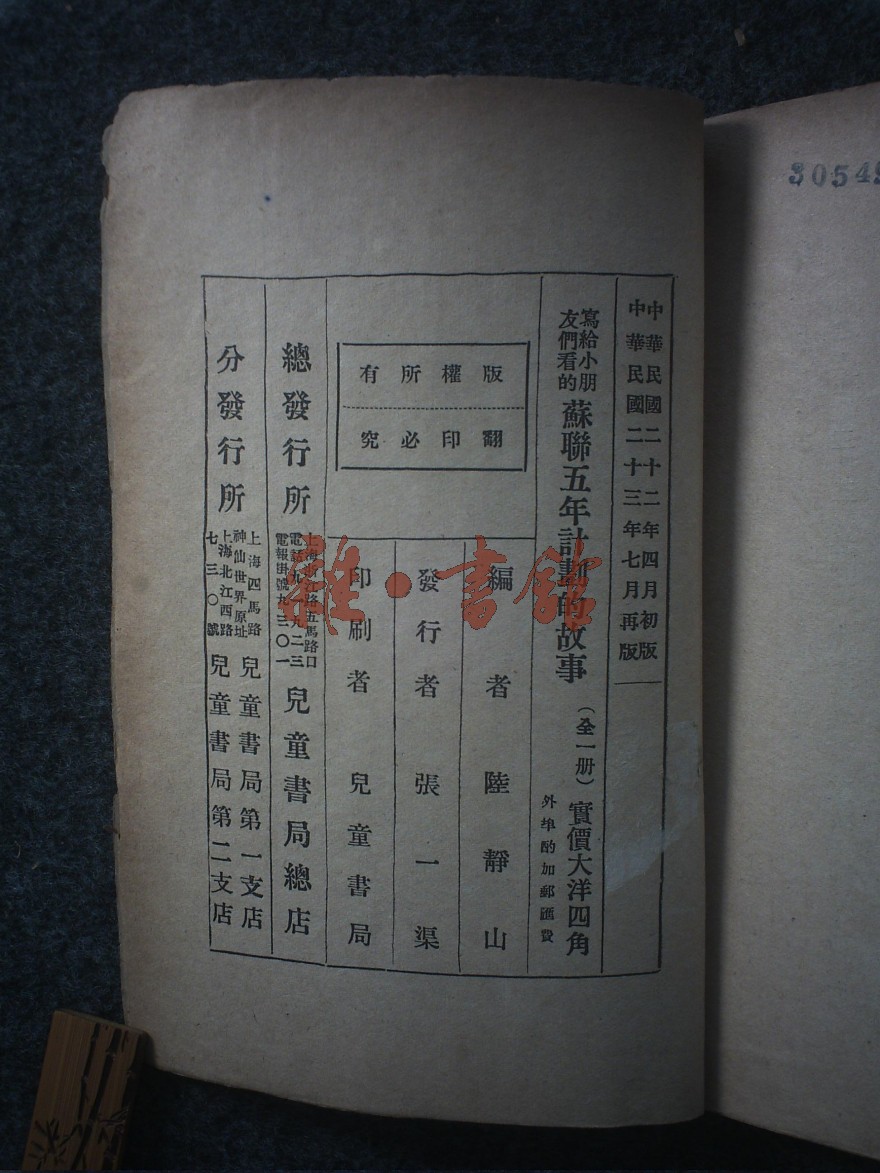 中華民國二十二年四月初版
中華民國二十三年七月再版
寫給小朋
友們看的
蘇聯五年計劃的故事
（全一册）
實價大洋四角
外埠酌加郵匯費
版權所有
翻印必究
編者 陸靜山
發行者 張一渠
印刷者 兒童書局
總發行所
上海浙江路五馬路口
電話九一九二三
電報掛號九三〇一
兒童書局總店
分發行所
上海四馬路
神仙世界原址
兒童書局第一支店
上海北江西路
七三〇號
兒童書局第二支店
雜·書館
30549